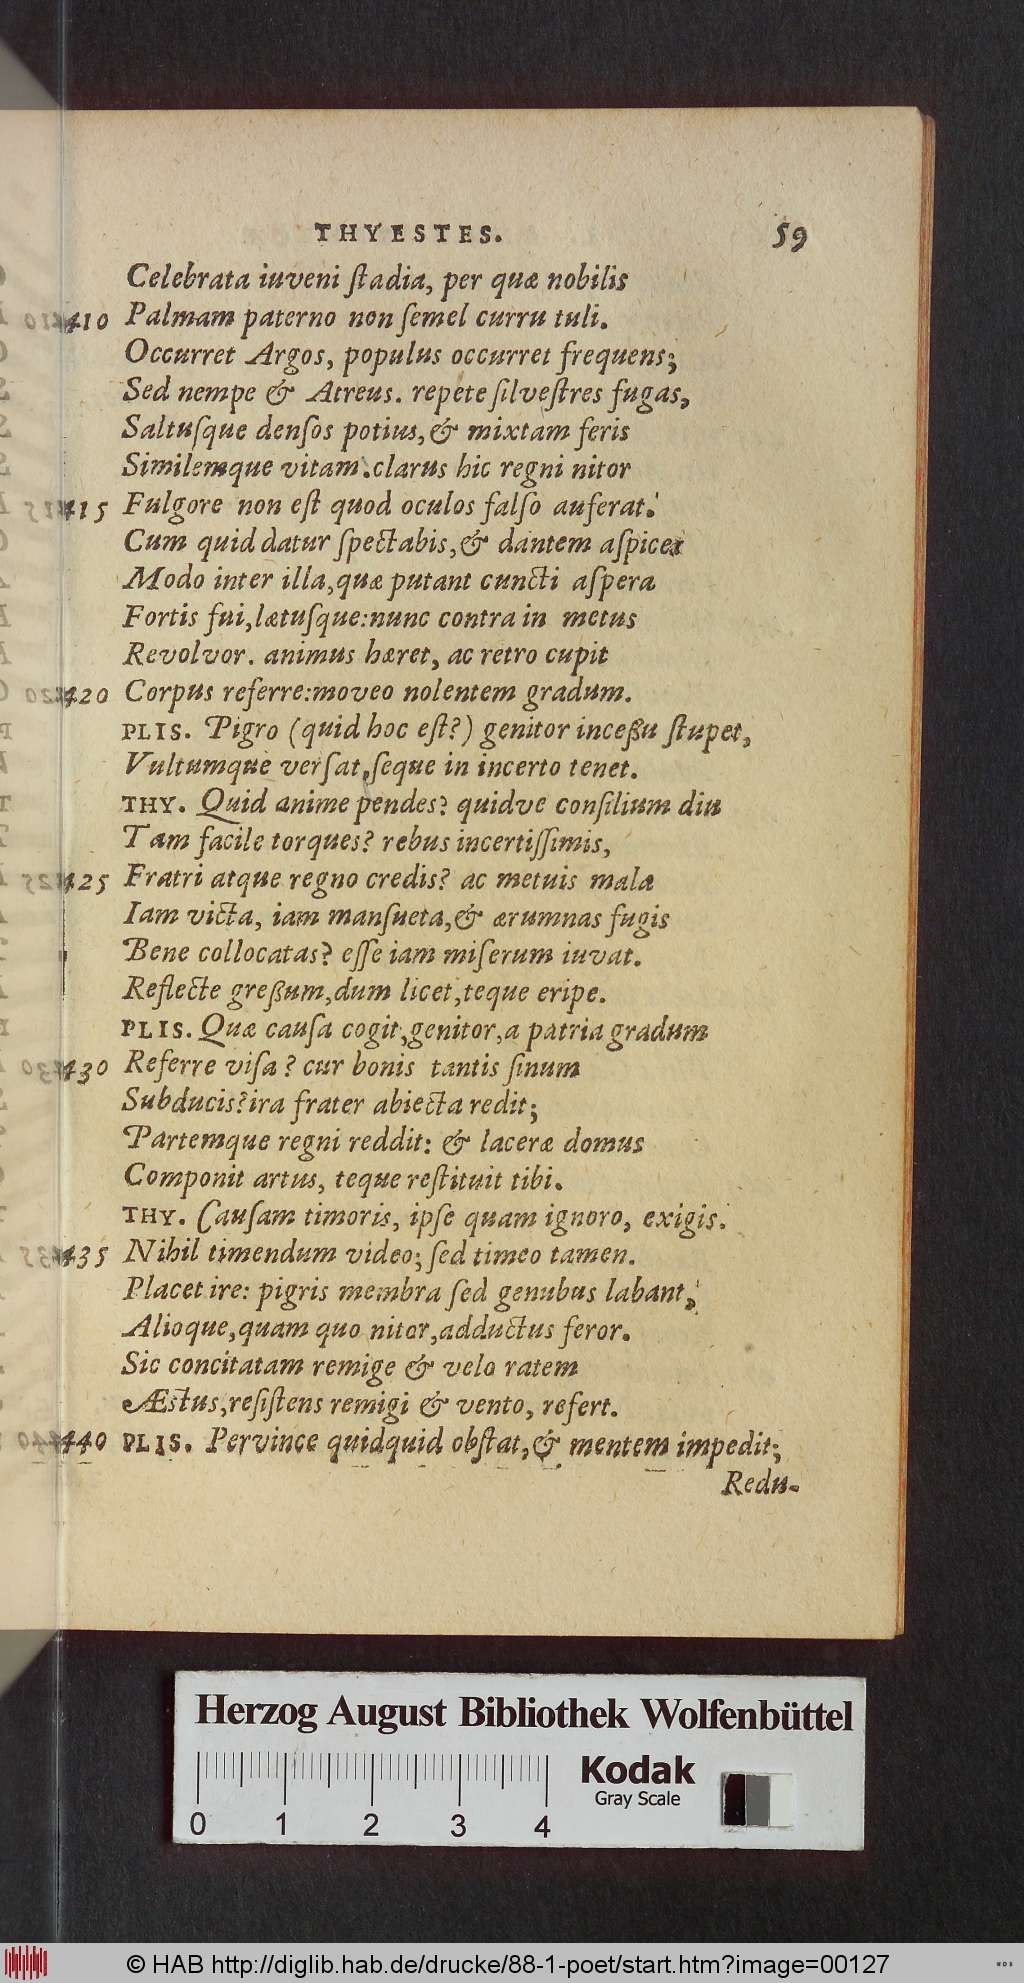 THYESTES. 59
Celebrata iuveni ſtadia, per quæ nobilis
410 Palmam paterno non ſemel curru tuli.
Occurret Argos, populus occurret frequens;
Sed nempe & Atreus. repete ſilveſtres fugas,
Saltuſque denſos potius,& mixtam feris
Similemque vitam.clarus hic regni nitor
415 Fulgore non eſt quod oculos falſo auferat:
Cum quid datur ſpectabis,& dantem aſpice:
Modo inter illa,quæ putant cuncti aſpera
Fortis fui,lætuſque:nunc contra in metus
Revolvor. animus hæret, ac retro cupit
420 Corpus referre:moveo nolentem gradum.
PLIS. Pigro (quid hoc eſt?) genitor inceßu ſtupet,
Vultumque verſat,ſeque in incerto tenet.
THY. Quid anime pendes? quidve conſilium diu
Tam facile torques? rebus incertiſſimis,
425 Fratri atque regno credis? ac metuis mala
Iam victa, iam manſueta,& ærumnas fugis
Bene collocatas? eſſe iam miſerum iuvat.
Reflecte greßum,dum licet,teque eripe.
PLIS. Quæ cauſa cogit,genitor,a patria gradum
430 Referre viſa? cur bonis tantis ſinum
Subducis?ira frater abiecta redit;
Partemque regni reddit: & laceræ domus
Componit artus, teque reſtituit tibi.
THY. Cauſam timoris, ipſe quam ignoro, exigis.
435 Nihil timendum video; ſed timeo tamen.
Placet ire: pigris membra ſed genubus labant,
Alioque,quam quo nitor,adductus feror.
Sic concitatam remige & velo ratem
Æstus,reſiſtens remigi & vento, refert.
440 PLIS. Pervince quidquid obſtat,& mentem impedit;
Redu-
Herzog August Bibliothek Wolfenbüttel
Kodak
Gray Scale
0 1 2 3 4
© HAB http://diglib.hab.de/drucke/88-1-poet/start.htm?image=00127